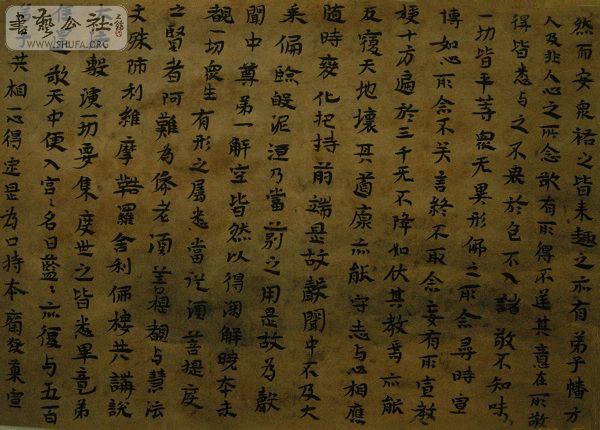 然而安衆祐之皆来趣之亦有弟子幡方
人及非人心之所念欲有所得不逆其意在所敬
得皆悉与之不畏於色不入諸欲不知味
一切皆平等衆无異形佛之所念尋時宣
博如心所念不失言終不取念妄有所宣教
十方遍於三千无不降如伏其教焉亦能
反覆天地壞其道原亦能守志与心相應
随時變化把持前端是故聲聞中不及大
乘偏般泥洹乃當前之用是故為聲
聞中尊第一解空皆然以得淘解曉本末
覩一切衆生有形之属悉當從須菩提度
之賢者阿難為老須菩提覩与慧法
文殊師利維摩羅舍利佛樓共講說
敷演一切要集度世之皆悉畢竟弟
欲天中便入宮〻名曰藍〻亦復与五百
共相一心得定是為口持本願發菓宣
書藝公社
WWW.SHUFA.ORG.CN